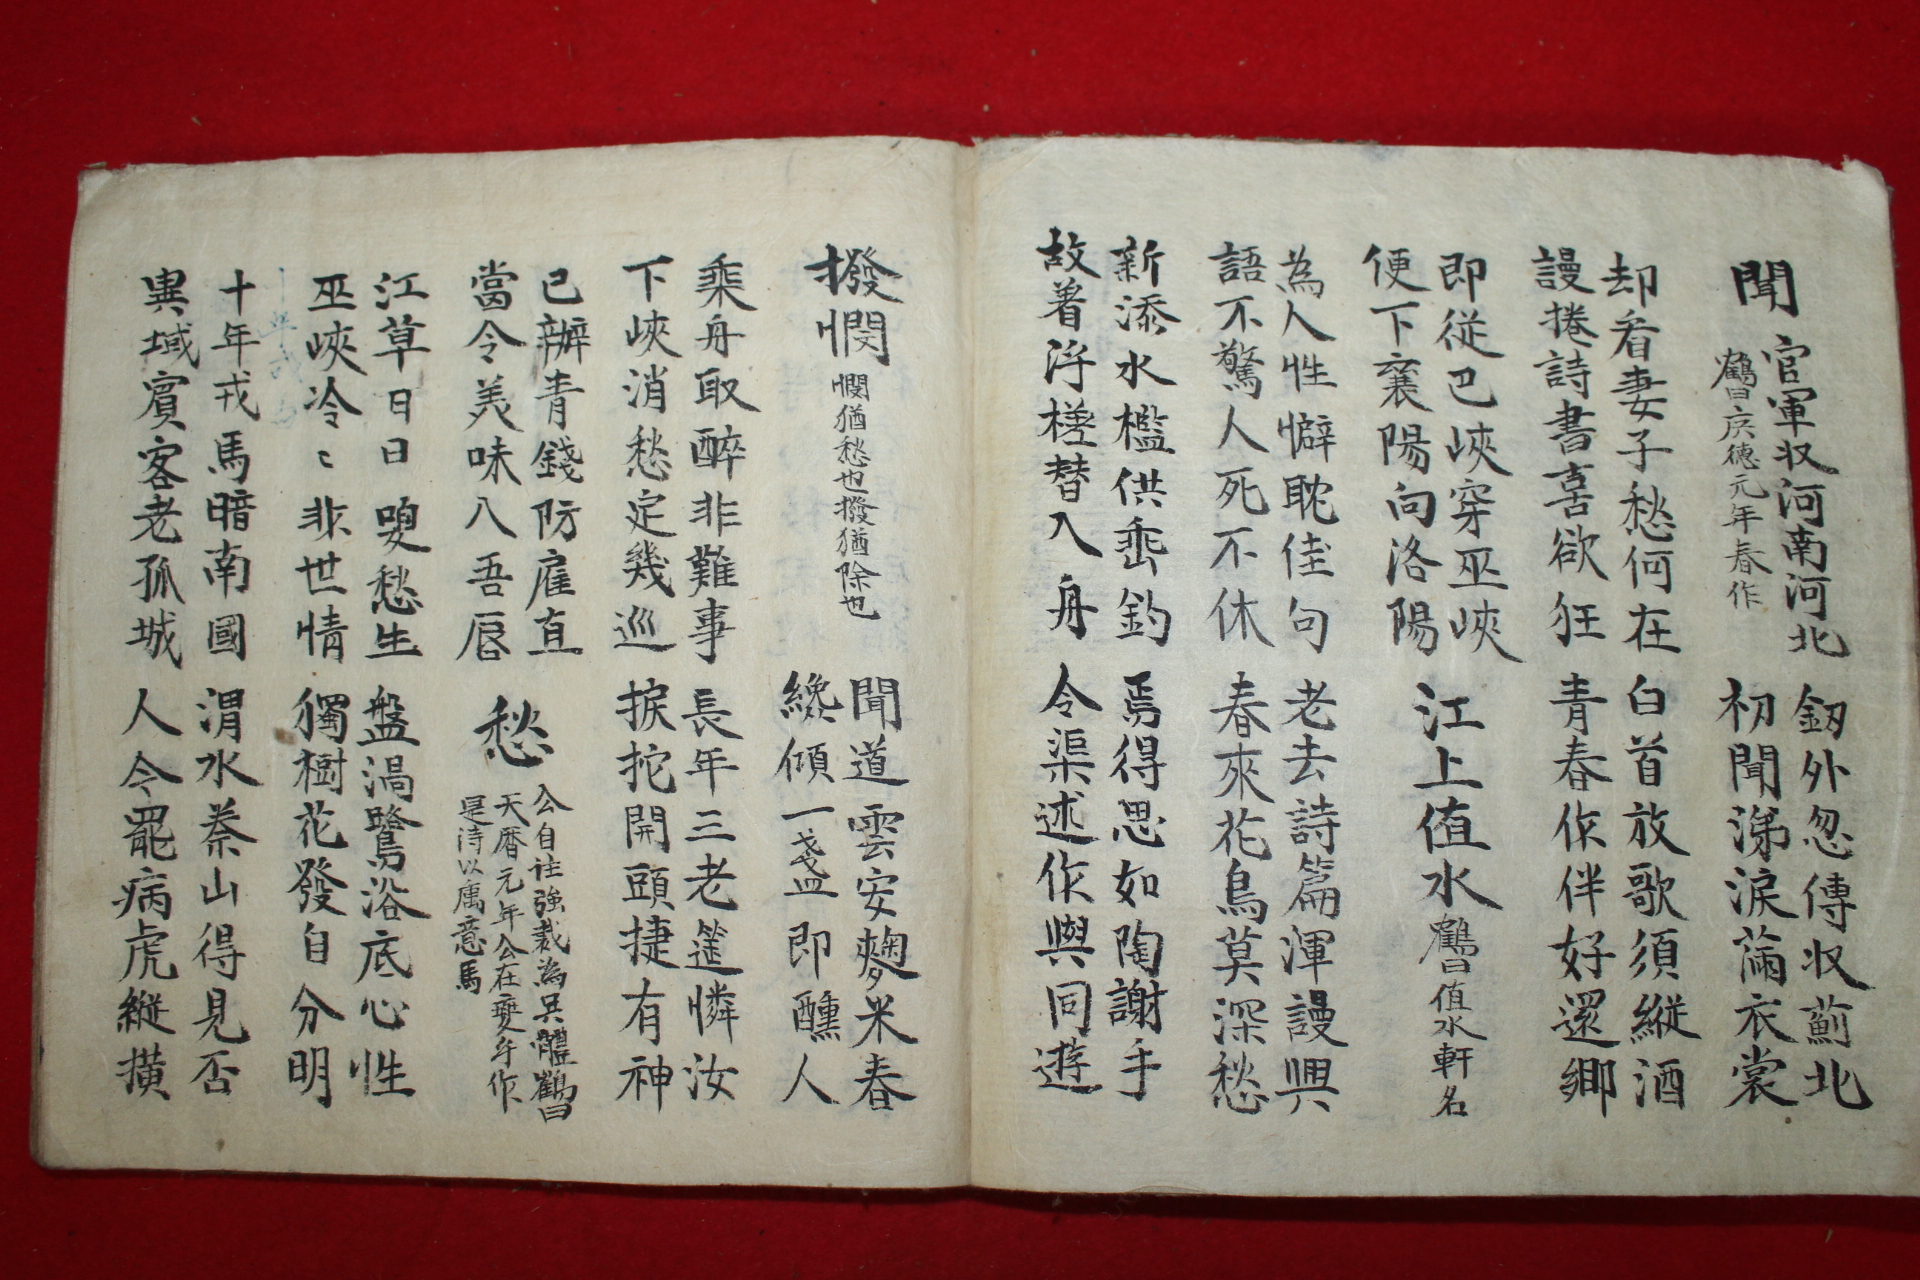 聞官軍収河南河北
鶴曰広徳元年春作
釼外忽傳収薊北
初聞涕淚滿衣裳
却看妻子愁何在
謾捲詩書喜欲狂
白首放歌須縱酒
青春作伴好還鄉
即從巴峽穿巫峽
便下襄陽向洛陽
江上值水
鶴曰值水軒名
為人性僻耽佳句
語不驚人死不休
老去詩篇渾謾興
春來花鳥莫深愁
新添水檻供垂釣
故着浮槎替入舟
焉得思如陶謝手
令渠述作與同遊
撥悶
悶猶愁也撥猶除也
聞道雲安麴米春
纔傾一盞即醺人
乘舟取醉非難事
下峽消愁定幾巡
長年三老遙憐汝
捩柁開頭捷有神
已辦青錢防雇直
當令美味入吾唇
愁
公自注強戲為吳體鶴曰
天曆元年公在夔州作
是詩以寓意焉
江草日日喚愁生
巫峽冷〻非世情
盤渦鷺浴底心性
獨樹花發自分明
十年戎馬暗南國
異域賓客老孤城
渭水秦山得見否
人今罷病虎縱橫